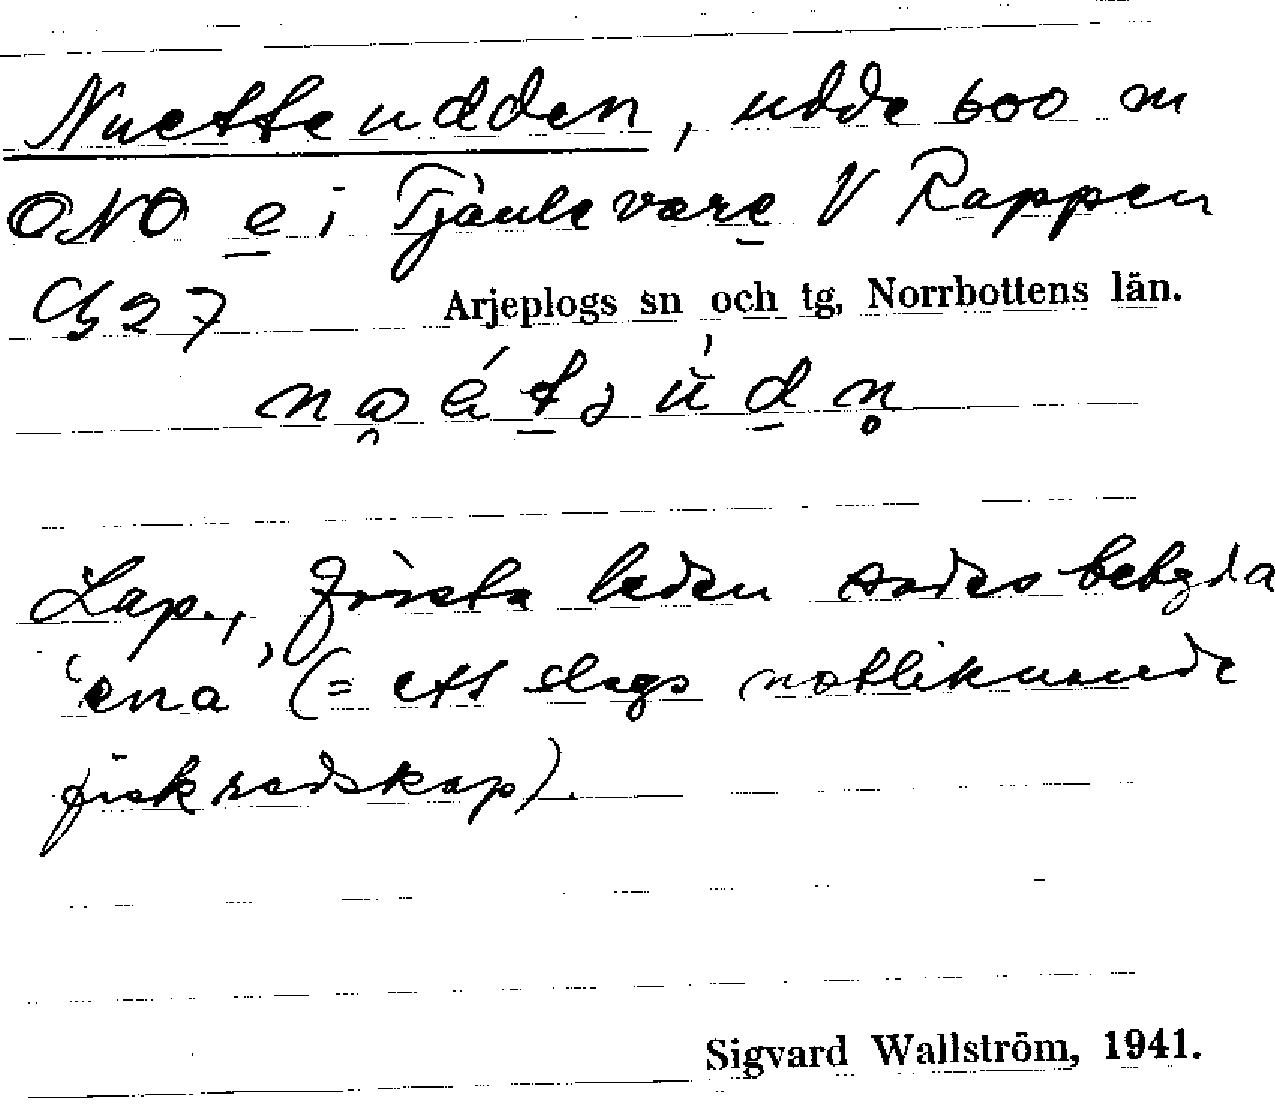 Nuetteudden, udde 600 m
ONO e i Tjåulevare V Rappen
27
Arjeplogs sn och tg, Norrbottens län.
Lap., första leden sades betyda
'ena' (= ett slags notliknande
fiskredskap).
Sigvard Wallström, 1941.